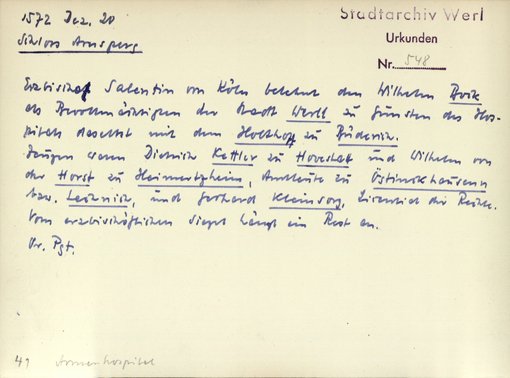 1572 Dez. 20
Schloss Arnsberg
Stadtarchiv Werl
Urkunden
Nr. 548
Erzbischof Salentin von Köln belehnt den Wilhelm Brock
als Bevollmächtigen der Stadt Werll zu Gunsten des Hos-
pitals daselbst mit dem Holthoff zu Büderich.
Zeugen waren Dietrich Kettler zu Hovestat und Wilhelm von
der Horst zu Heimertzheim, Amtleute zu Östinckhausenn
bzw. Lechnich, und Gerhard Kleinsorg, Licentiat der Rechte.
Vom erzbischöflichen Siegel hängt ein Rest an.
Or. Pgt.
41 Armenhospital